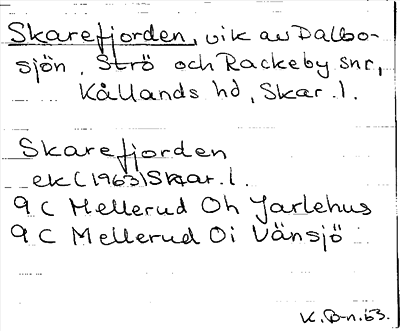 Skarefjorden, vik av Dalbo-
sjön. Strö och Rackeby snr,
Kållands hd, Skar. l.
Skarefjorden
ek (1963) Skar. l.
9 C Mellerud Oh Jarlehus
9 C Mellerud Oi Vänsjö
K. B-n. 63.